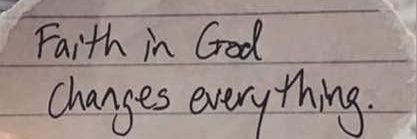 Faith in God
changes everything.